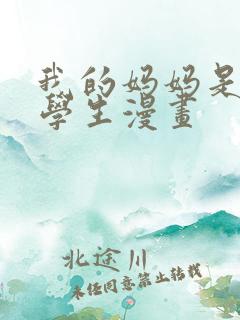 我的妈妈是
學生漫畫
北途川
未任同意禁止转载